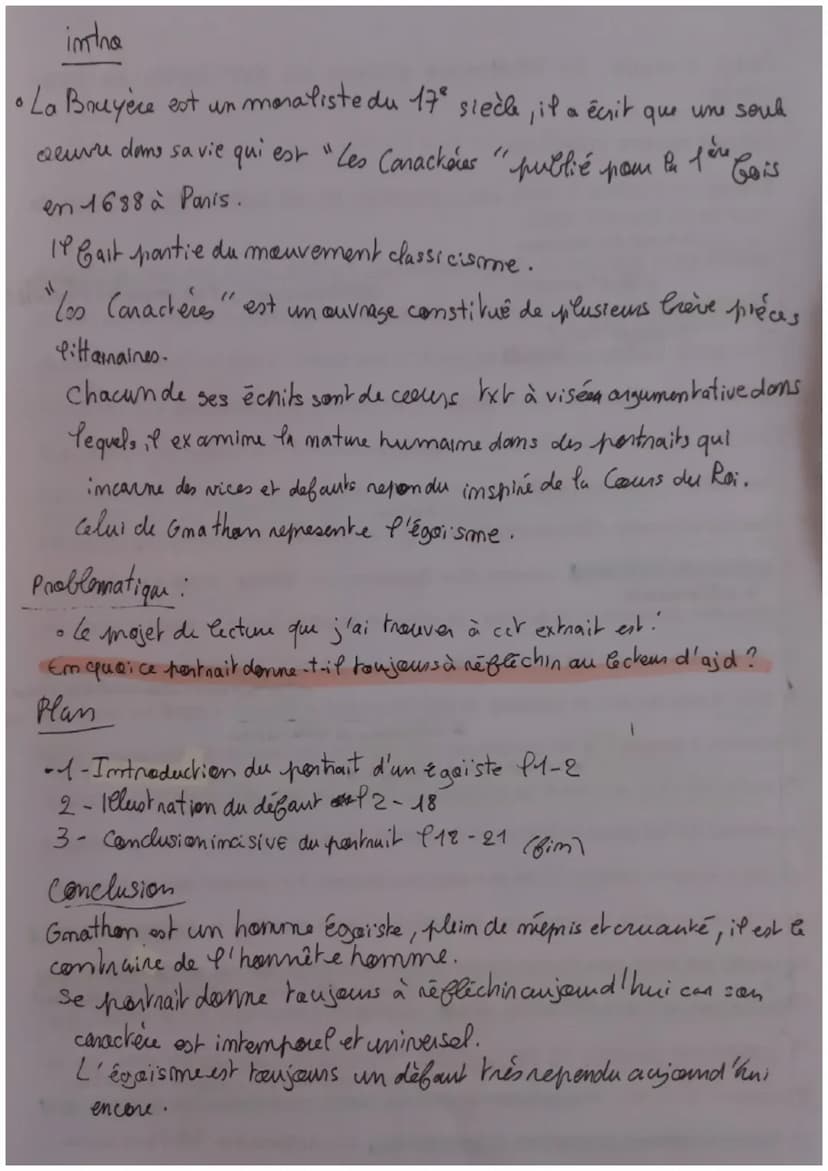 intro
• La Bruyère est un moraliste du 17e siècle, il a écrit que une seul
oeuvre dans sa vie qui est "Les Caractères" publié pour la 1ère fois
en 1688 à Paris.
Il fait partie du mouvement classicisme.
"Les Caractères" est un ouvrage constitué de plusieurs brève pièces
littéraires.
Chacun de ses écrits sont de cours txt à visée argumentative dans
lequels il examine la nature humaine dans des portraits qui
incarne des vices et defauts repondu inspiré de la Cours du Roi.
Celui de Gnathon represente l'égoïsme.
Problematique :
• Le projet de lecture que j'ai trouver à cet extrait est :
En quoi ce portrait donne-t-il toujours à réfléchir au lecteur d'ajd ?
Plan
•1 - Introduction du portrait d'un égoïste l1-2
2 - Illustration du défaut l2-18
3 - Conclusion incisive du portrait l18-21 (fin)
Conclusion
Gnathon est un homme égoïste, plein de mépris et cruauté, il est le
contraire de l'honnête homme.
Se portrait donne toujours à réfléchir aujourd'hui car son
caractère est intemporel et universel.
L'égoïsme est toujours un défaut très rependu aujourd'hui
encore.